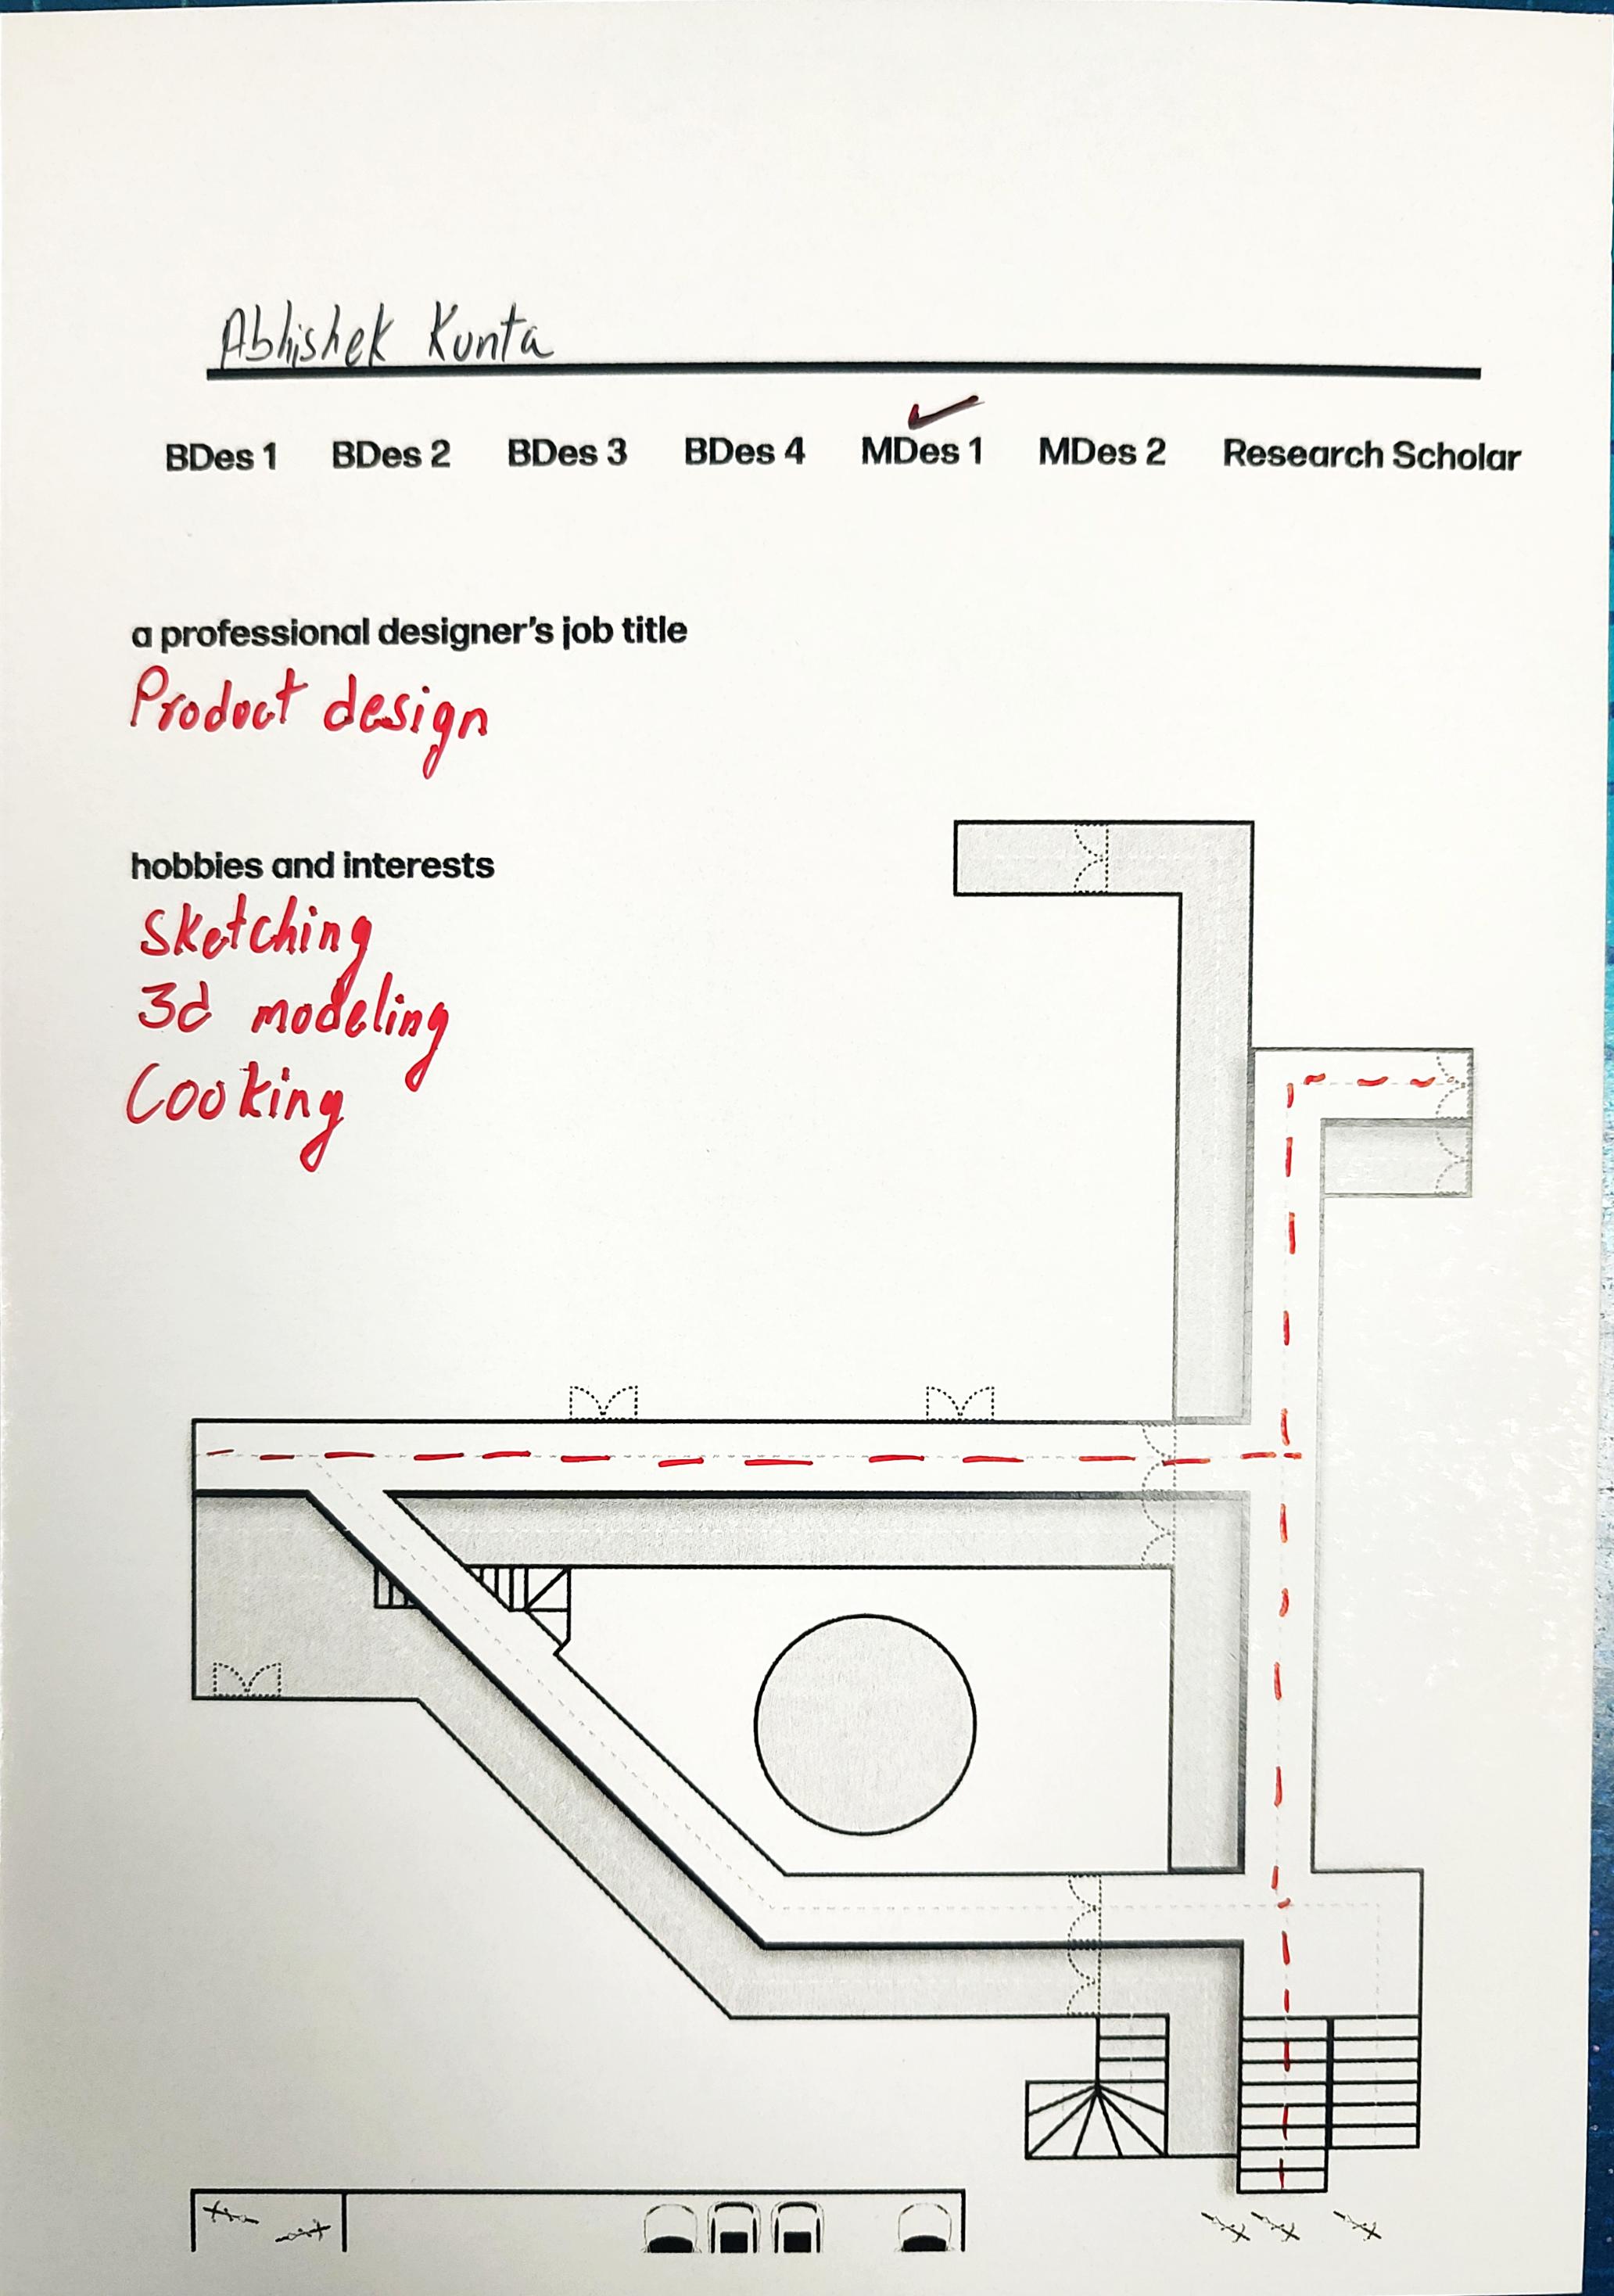 Abhishek Kunta
BDes 1 BDes 2 BDes 3 BDes 4 MDes 1 MDes 2 Research Scholar
a professional designer's job title
Product design
hobbies and interests
Sketching
3d modeling
Cooking